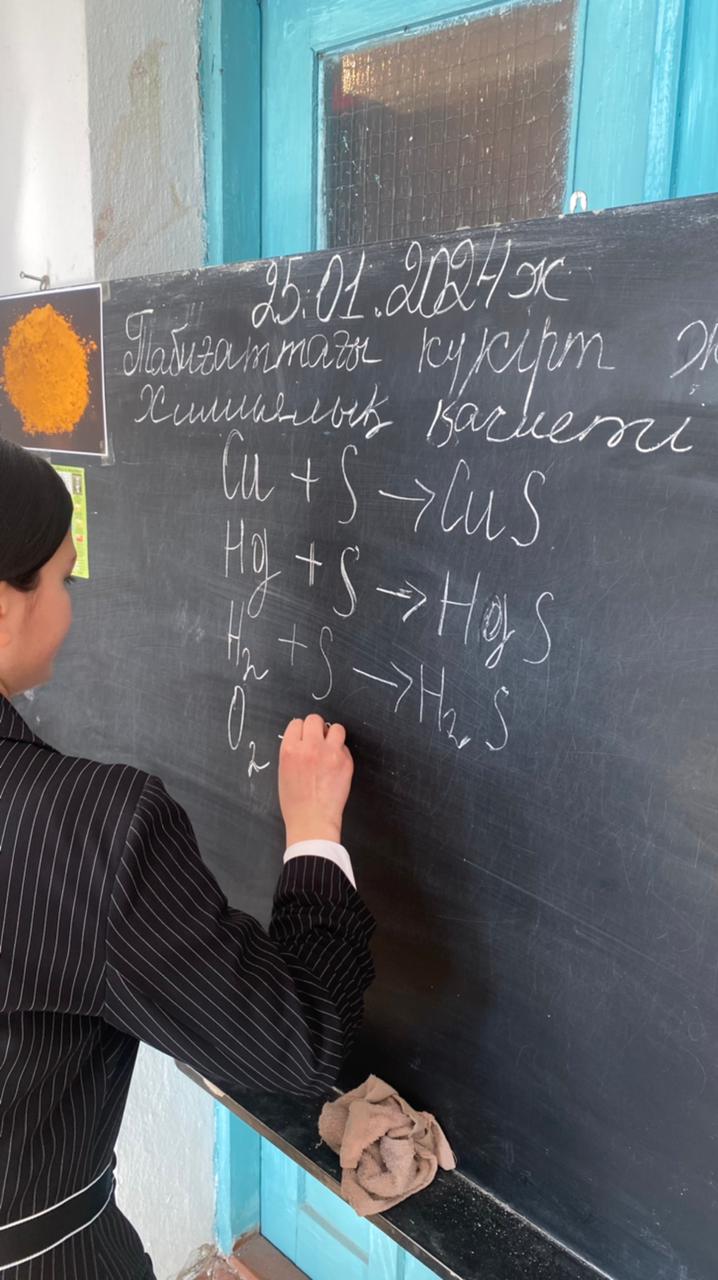 25.01.2024ж
Табиғаттағы күкірт
Химиялық қасиеті
Cu + S → CuS
Hg + S → HgS
H₂ + S → H₂S
O₂